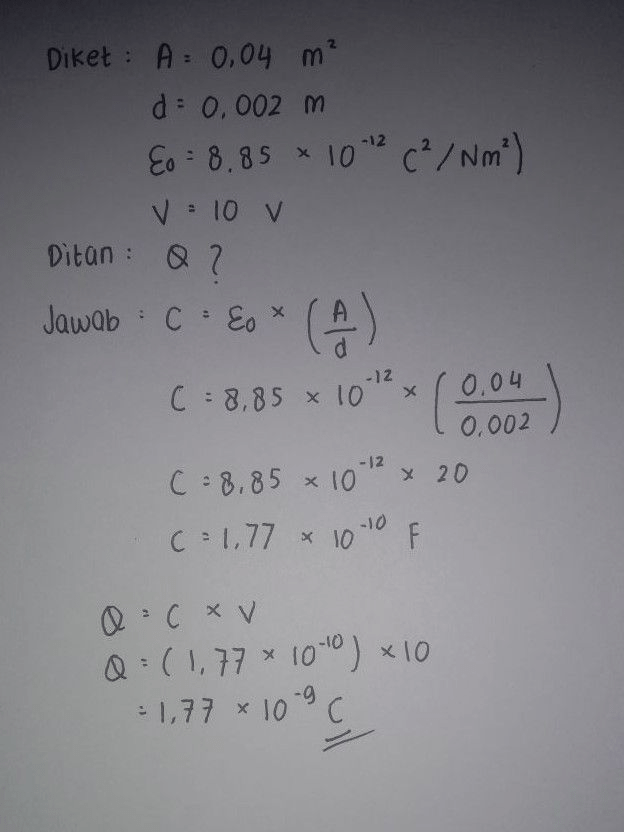 Diket : A = 0,04 m²
d = 0,002 m
ε₀ = 8,85 × 10⁻¹² C²/Nm²)
V = 10 V
Ditan : Q ?
Jawab : C = ε₀ × (A/d)
C = 8,85 × 10⁻¹² × (0,04/0,002)
C = 8,85 × 10⁻¹² × 20
C = 1,77 × 10⁻¹⁰ F
Q = C × V
Q = (1,77 × 10⁻¹⁰) × 10
= 1,77 × 10⁻⁹ C